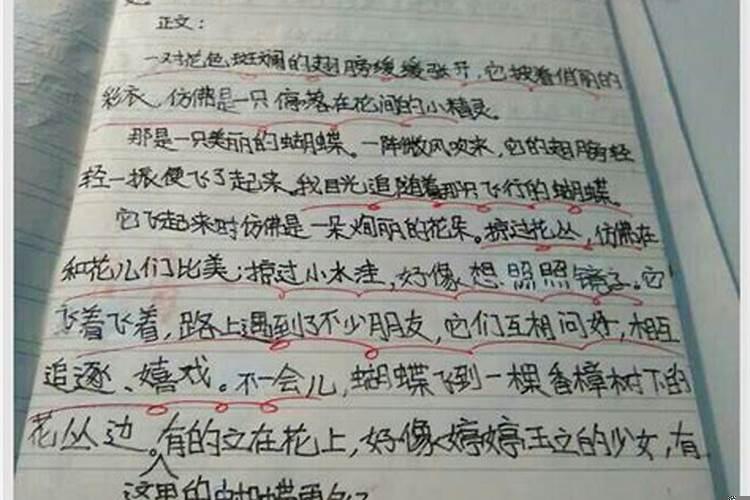 正文:
一对花色斑斓的翅膀缓缓张开,它披着俏丽的
彩衣,仿佛是一只停落在花间的小精灵。
那是一只美丽的蝴蝶。一阵微风吹来,它的翅膀轻
轻一振便飞了起来。我目光追随着那只飞行的蝴蝶。
它飞起来时仿佛是一朵绚丽的花朵。掠过花丛,仿佛在
和花儿们比美;掠过小水洼,好像想照照镜子。它
飞着飞着,路上遇到了不少朋友,它们互相问好,相互
追逐、嬉戏。不一会儿,蝴蝶飞到一棵香樟树下的
花丛边。有的立在花上,好像婷婷玉立的少女,有
这里的蝴蝶更多了